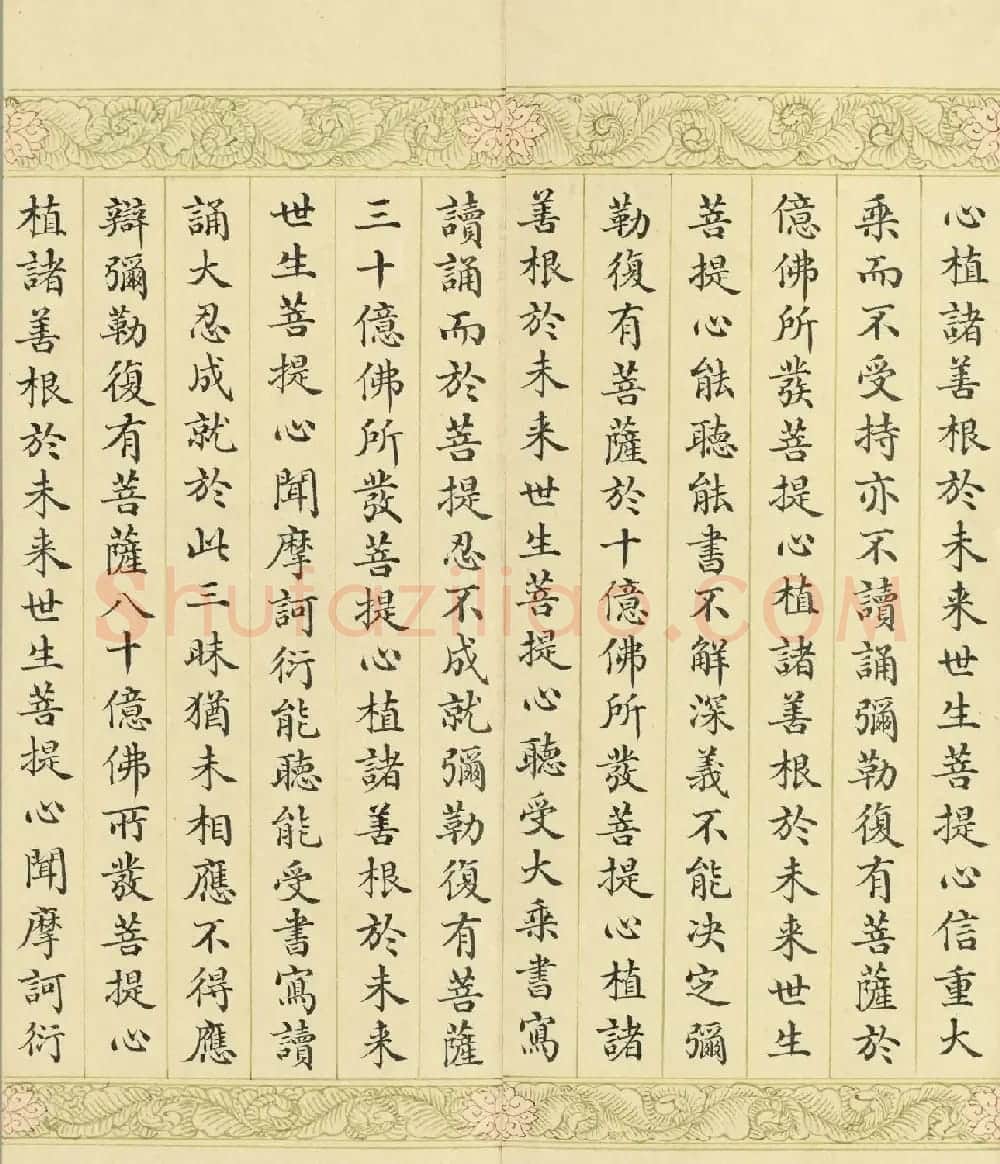 心植諸善根於未来世生菩提心信重大
乘而不受持亦不讀誦彌勒復有菩薩於
億佛所發菩提心植諸善根於未来世生
菩提心能聽能書不解深義不能决定彌
勒復有菩薩於十億佛所發菩提心植諸
善根於未来世生菩提心聽受大乘書寫
讀誦而於菩提忍不成就彌勒復有菩薩
三十億佛所發菩提心植諸善根於未来
世生菩提心聞摩訶衍能聽能受書寫讀
誦大忍成就於此三昧猶未相應不得應
辯彌勒復有菩薩八十億佛所發菩提心
植諸善根於未来世生菩提心聞摩訶衍
Shufaziliao.COM